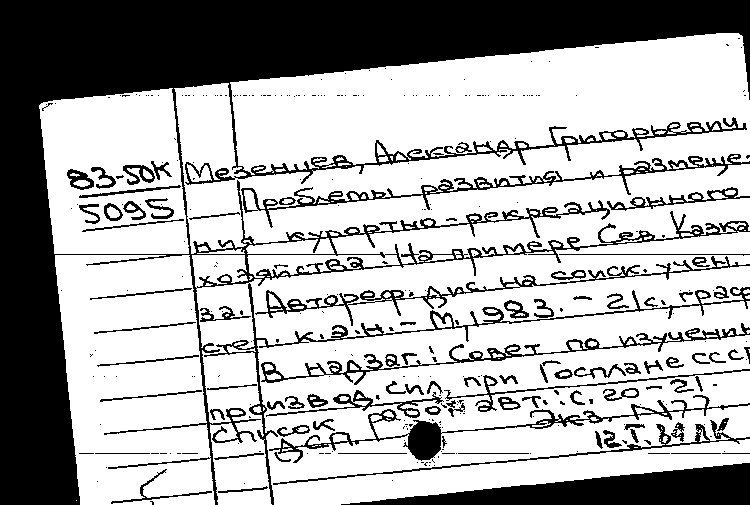 83-50К
5095
Мезенцев, Александр Григорьевич.
Проблемы развития и размеще-
ния курортно-рекреационного
хозяйства: На примере Сев. Кавка
за. Автореф. дис. на соиск. учен.
степ. к.э.н. - М., 1983. - 21с., граф
В надзаг.: Совет по изучению
производ. сил при Госплане СССР
Список работ авт.: с. 20-21.
ДСП. Экз. N77.
12.I.84 ЛК